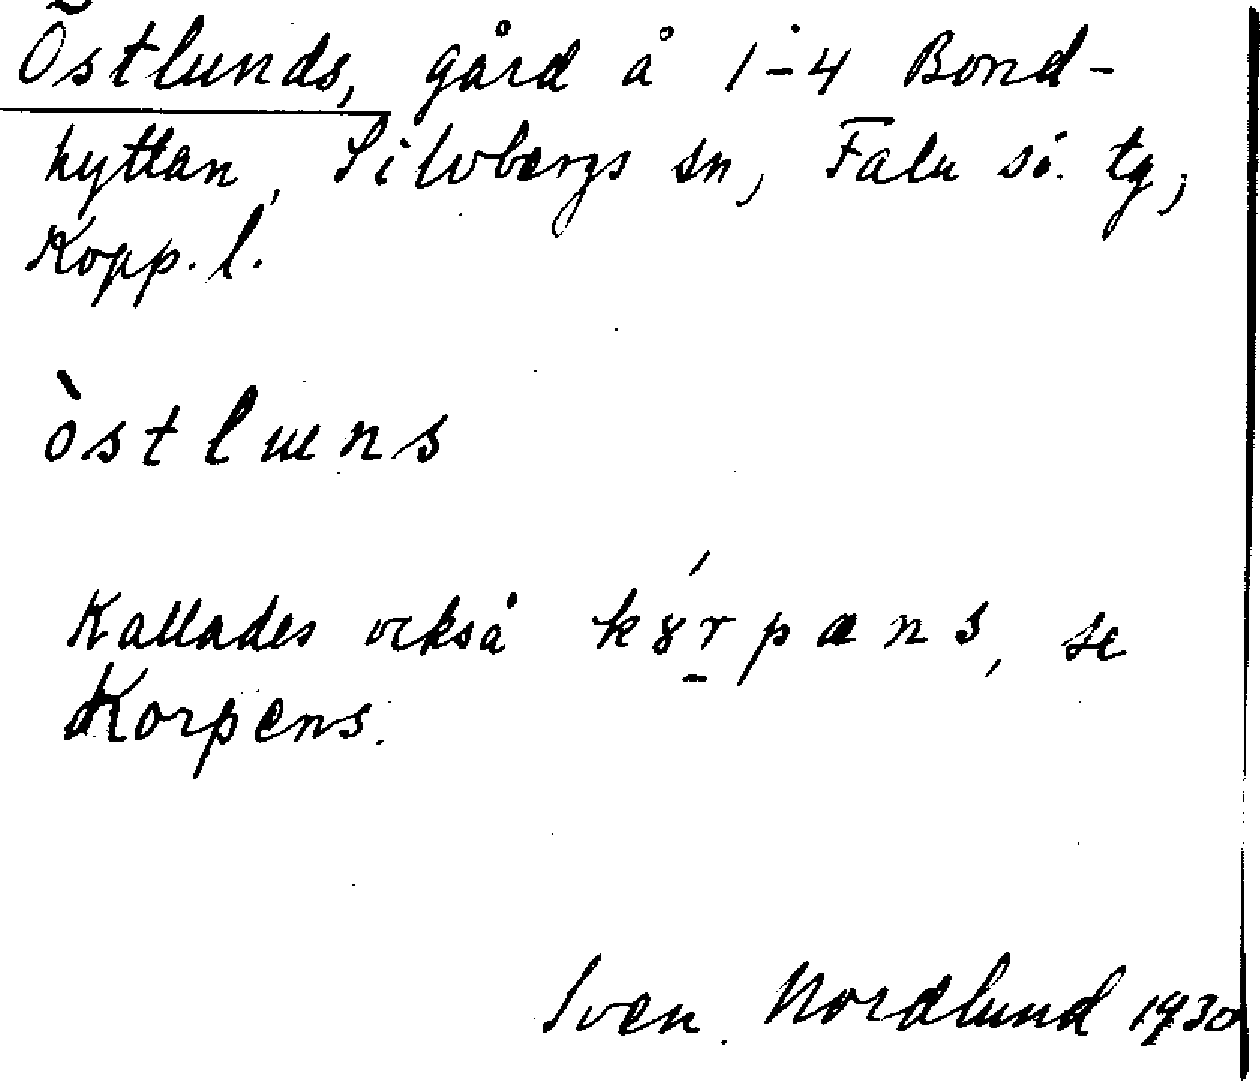 Östlunds, gård å 1-4 Bond-
hyttan, Silvbergs sn, Falu sö. tg,
Kopp. l.
òstlɯns
Kallades också kɤ́r̠pæns, se
Korpens.
Sven Nordlund 1930